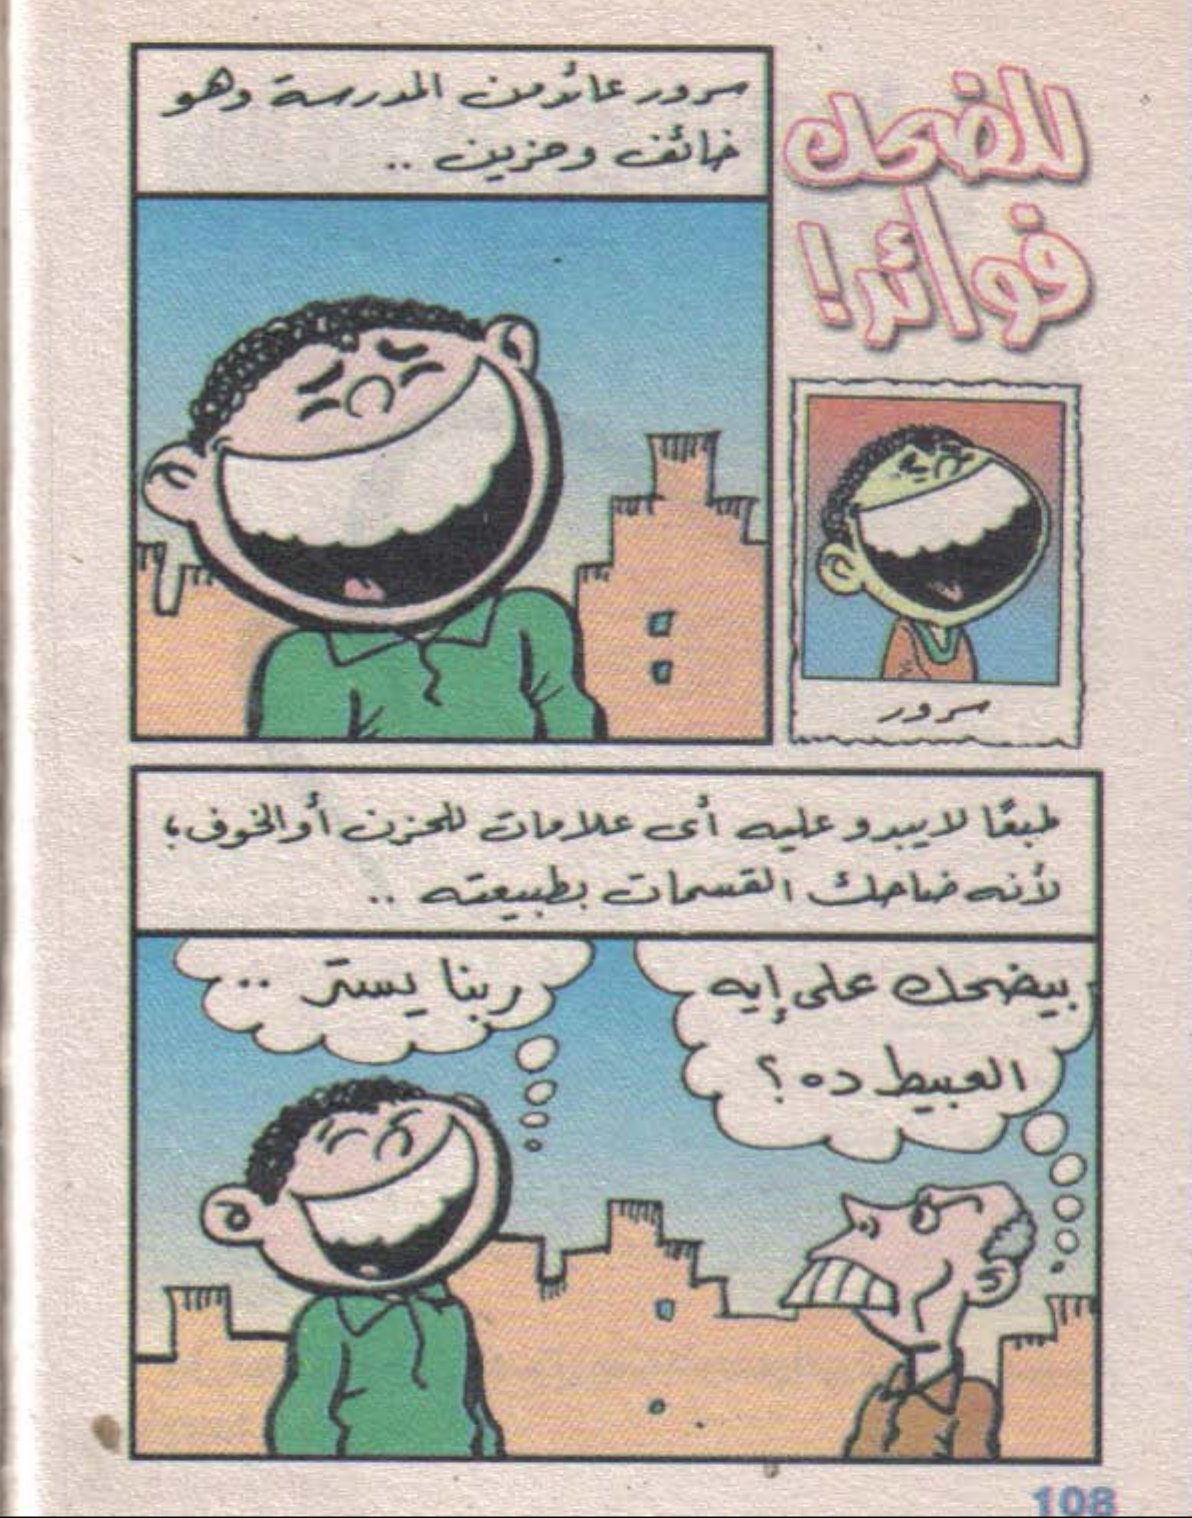 للضحك
فوائد!
سرور
سرور عائد من المدرسة وهو
خائف وحزين ..
طبعًا لا يبدو عليه أى علامات للحزن أو الخوف؛
لأنه ضاحك القسمات بطبيعته ..
بيضحك على إيه
العبيط ده؟
ربنا يستر ..
108